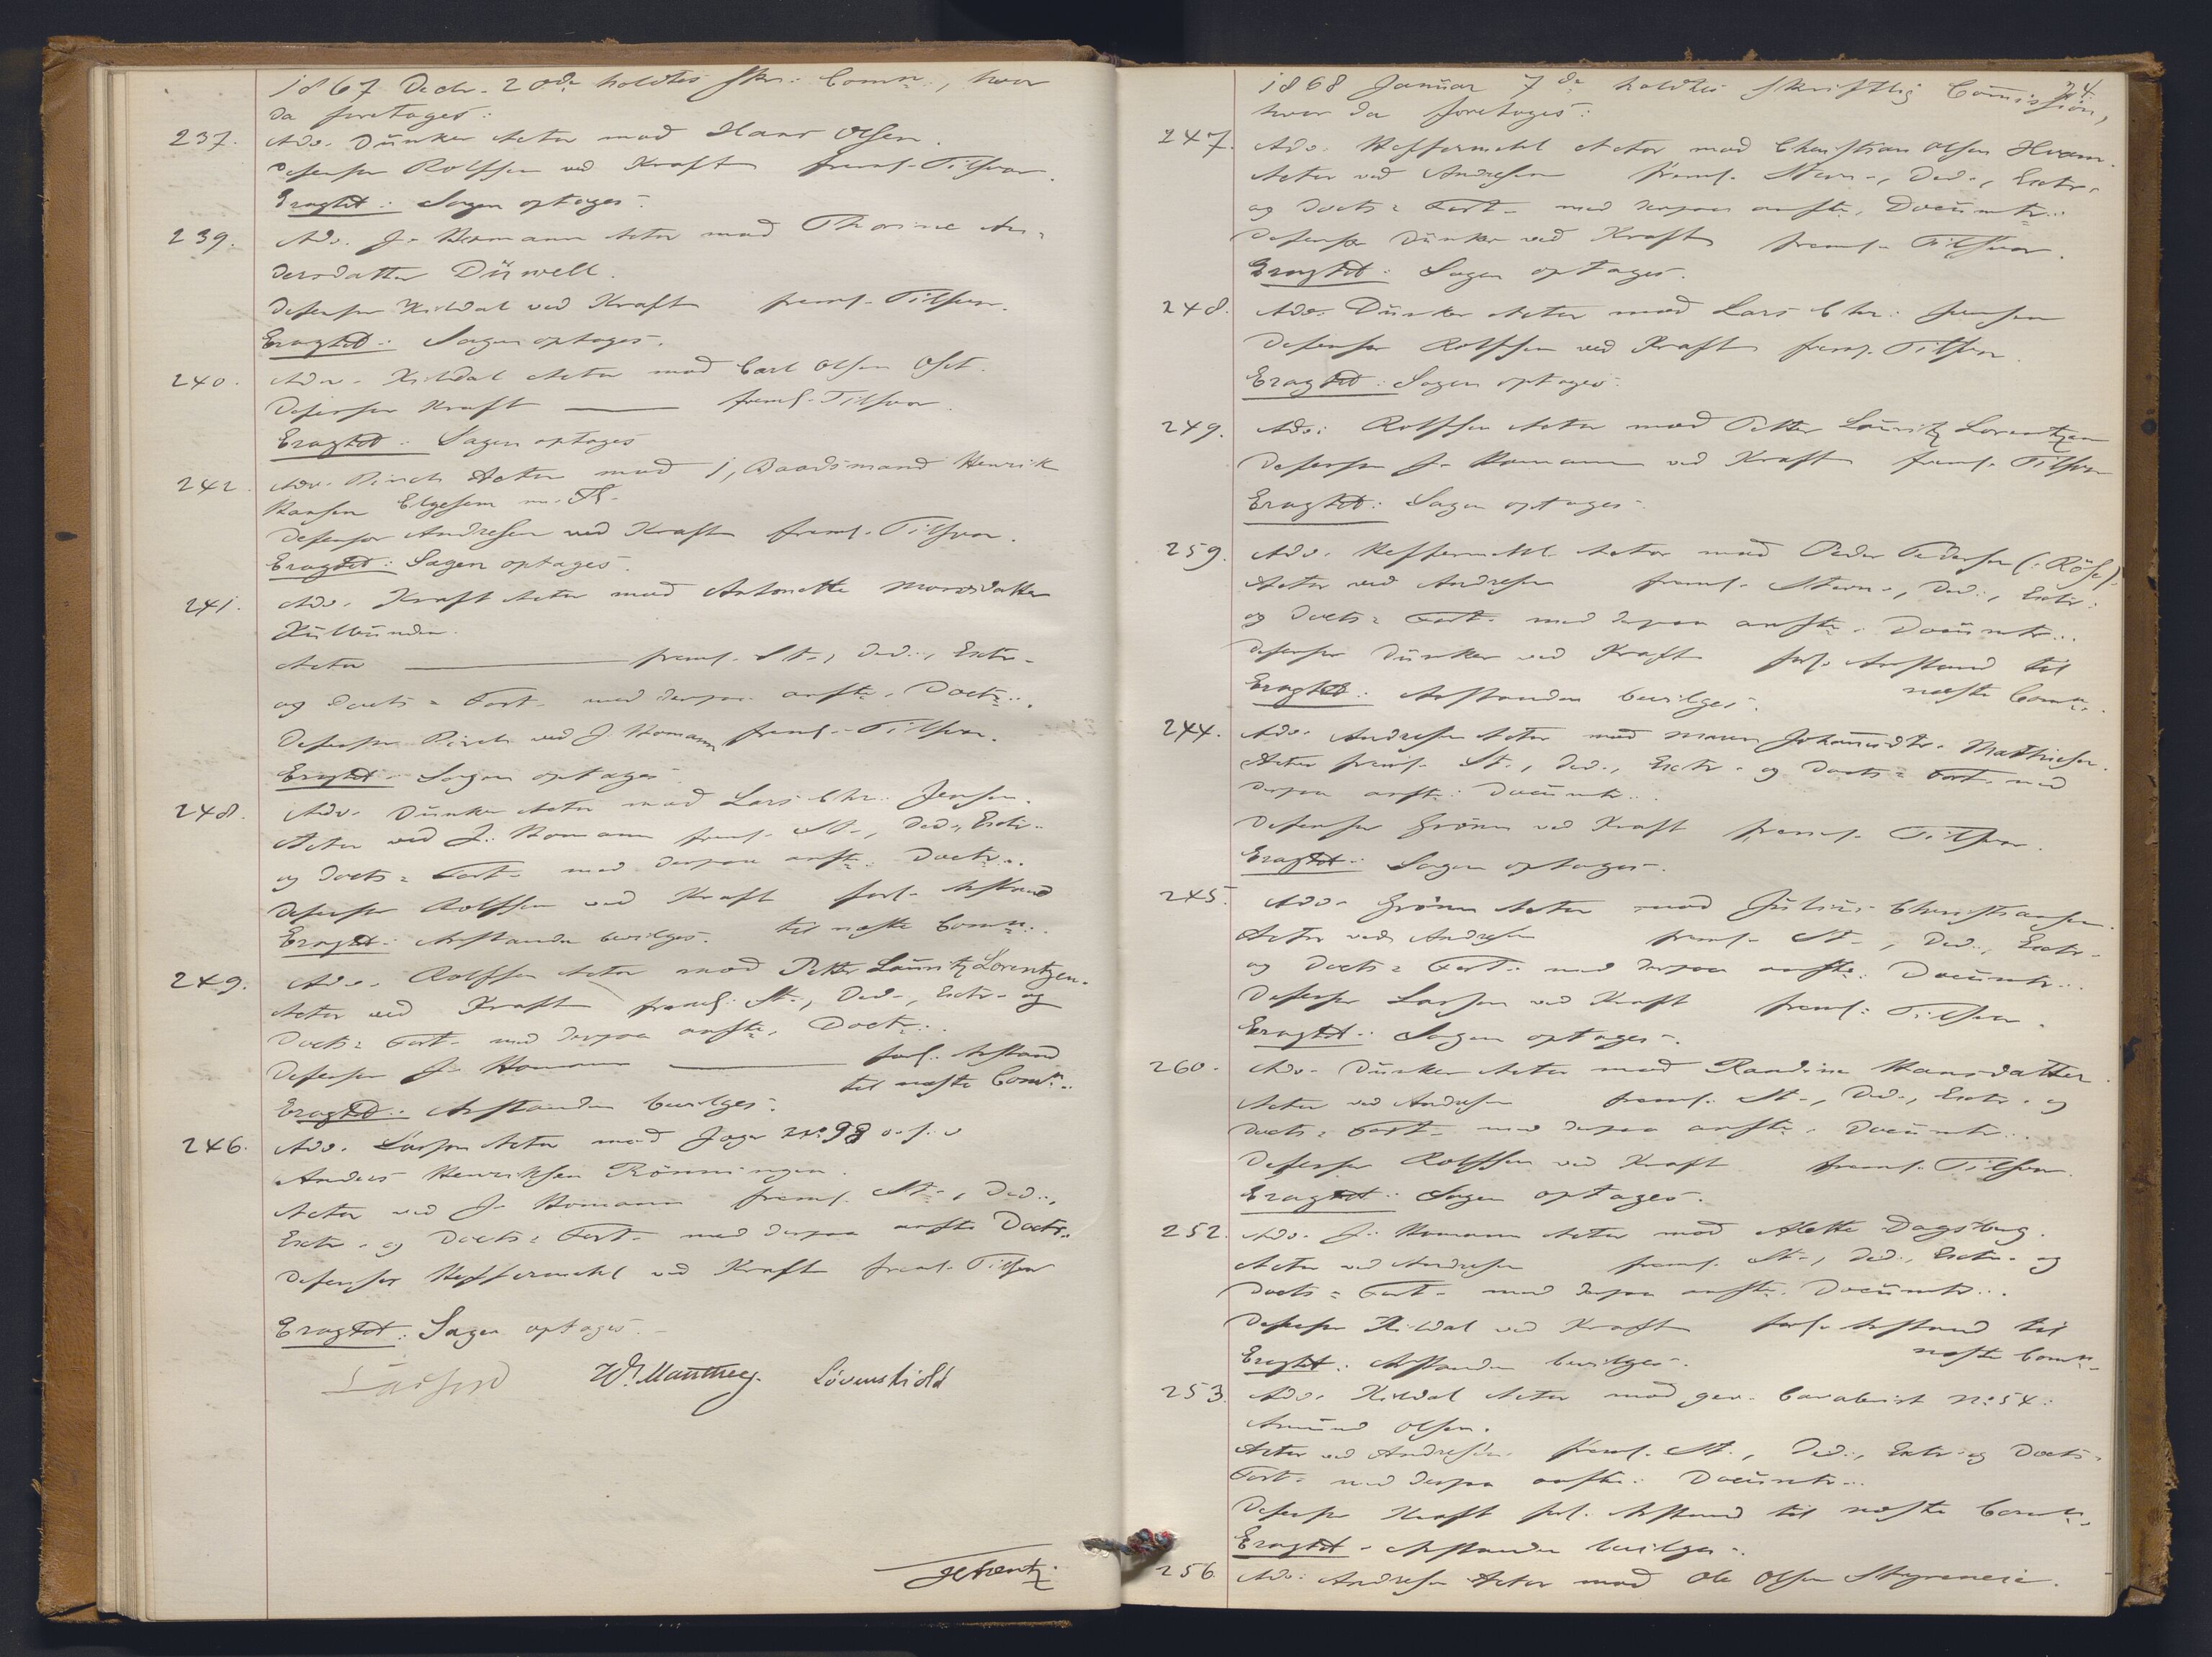 1867 Decbr. 20de holdtes skr: Comn:, hvor
da foretages:
237. Adv. Dünker Actor mod Hans Olsen.
Defensor Rolfsen ved Kraft freml. Tilsvar.
Eragtet: Sagen optages.
239. Adv. J. Homann Actor mod Thorine An-
dersdatter Düwell.
Defensor Kildal ved Kraft freml. Tilsvar.
Eragtet: Sagen optages.
240. Adv. Kildal Actor mod Carl Olsen Oset.
Defensor Kraft — freml. Tilsvar.
Eragtet: Sagen optages
242. Adv. Pirch Actor mod 1, Baadsmand Henrik
Hansen Elgesem m. Fl.
Defensor Andresen ved Kraft freml. Tilsvar.
Eragtet: Sagen optages.
241. Adv. Kraft Actor mod Antonette
Actor — freml. St., Ded., Extr.
og Docts= Fort. med derpaa anfte. Doctr..
Defensor Pirch ved J. Homann freml. Tilsvar.
Eragtet: Sagen optages
248. Adv. Dünker Actor mod Lars Chr: Jensen.
Actor ved J. Homann freml. St., Ded., Extr.
og Docts= Fort. med derpaa anfte. Doctr..
Defensor Rolfsen ved Kraft forl. Anstand
til næste Comn:.
Eragtet: Anstanden bevilges.
249. Adv. Rolfsen Actor mod Petter Lauritz Lorentzen.
Actor ved Kraft freml. St., Ded., Extr. og
Docts= Fort. med derpaa anfte. Doctr..
Defensor J. Homann — forl. Anstand
til næste Comn:.
Eragtet: Anstanden bevilges.
246. Adv. Larsen Actor mod Jæger No 98
Anders Henriksen Rönningen.
Actor ved J. Homann freml. St., Ded.,
Extr. og Docts= Fort. med derpaa anfte Doctr.
Defensor Heffermehl ved Kraft freml. Tilsvar
Eragtet: Sagen optages.
Manthey. Lövenskiold
24.
1868 Januar 7de holdtes skriftlig Comission,
hvor da foretages:
247. Adv. Heffermehl Actor mod Christian Olsen Hvam.
Actor ved Andresen freml. Stevn., Ded., Extr.
og Docts= Fort. med derpaa anfte. Documtr..
Defensor Dünker ved Kraft freml. Tilsvar.
Eragtet: Sagen optages.
248. Adv. Dünker Actor mod Lars Chr: Jensen
Defensor Rolfsen ved Kraft freml. Tilsvar.
Eragtet: Sagen optages.
249. Adv: Rolfsen Actor mod Petter Lauritz Lorentzen
Defensor J. Homann ved Kraft freml. Tilsvar
Eragtet: Sagen optages.
259. Adv. Heffermehl Actor mod Peder Pedersen
Actor ved Andresen freml. Stevn., Ded., Extr.
og Docts= Fort. med derpaa anfte. Documtr..
Defensor Dünker ved Kraft forl. Anstand til
næste Comn:.
Eragtet: Anstanden bevilges.
244. Adv. Andresen Actor mod Maren Johannsdtr. Mathiesen.
Actor freml. St., Ded., Extr. og Docts= Fort. med
derpaa anfte: Documtr..
Defensor Grönn ved Kraft freml. Tilsvar.
Eragtet: Sagen optages.
245. Adv. Grönn Actor mod Julius Christiansen.
Actor ved Andresen freml. St., Ded., Extr.
og Docts= Fort. med derpaa anfte: Documtr..
Defensor Larsen ved Kraft freml: Tilsvar.
Eragtet: Sagen optages.
260. Adv. Dünker Actor mod Randine Hansdatter.
Actor ved Andresen freml. St., Ded., Extr. og
Docts= Fort. med derpaa anfte. Documtr..
Defensor Rolfsen ved Kraft freml. Tilsvar.
Eragtet: Sagen optages.
252. Adv. J. Homann Actor mod Alette Dagsberg.
Actor ved Andresen freml. St., Ded., Extr. og
Docts= Fort. med derpaa anfte. Documtr..
Defensor Kildal ved Kraft forl. Anstand til
næste Comn:.
Eragtet: Anstanden bevilges.
253. Adv. Kildal Actor mod gev. Cavalerist No: 54:
Amund Olsen.
Actor ved Andresen freml. St., Ded., Extr. og Docts=
Fort. med derpaa anfte: Documtr..
Defensor Kraft forl. Anstand til næste Comn:.
Eragtet. Anstanden bevilges.
256. Adv: Andresen Actor mod Ole Olsen